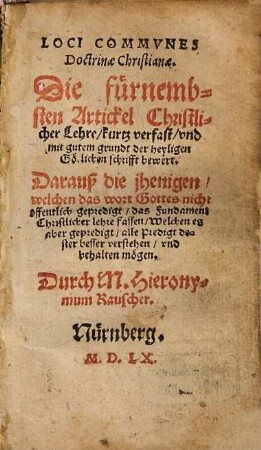 LOCI COMMVNES
Doctrinæ Christianæ.
Die fürnemb-
sten Artickel Christli-
cher Lehre/kurtz verfast/vnd
mit gutem grundt der heyligen
Gö.lichen schrifft bewert.
Darauß die jhenigen/
welchen das wort Gottes nicht
öffentlich gepredigt/das Fundament
Christlicher lehre fassen/Welchen es
aber gepredigt/alle Predigt de-
ster besser verstehen/vnd
behalten mögen.
Durch M. Hierony-
mum Rauscher.
Nürnberg.
M. D. LX.